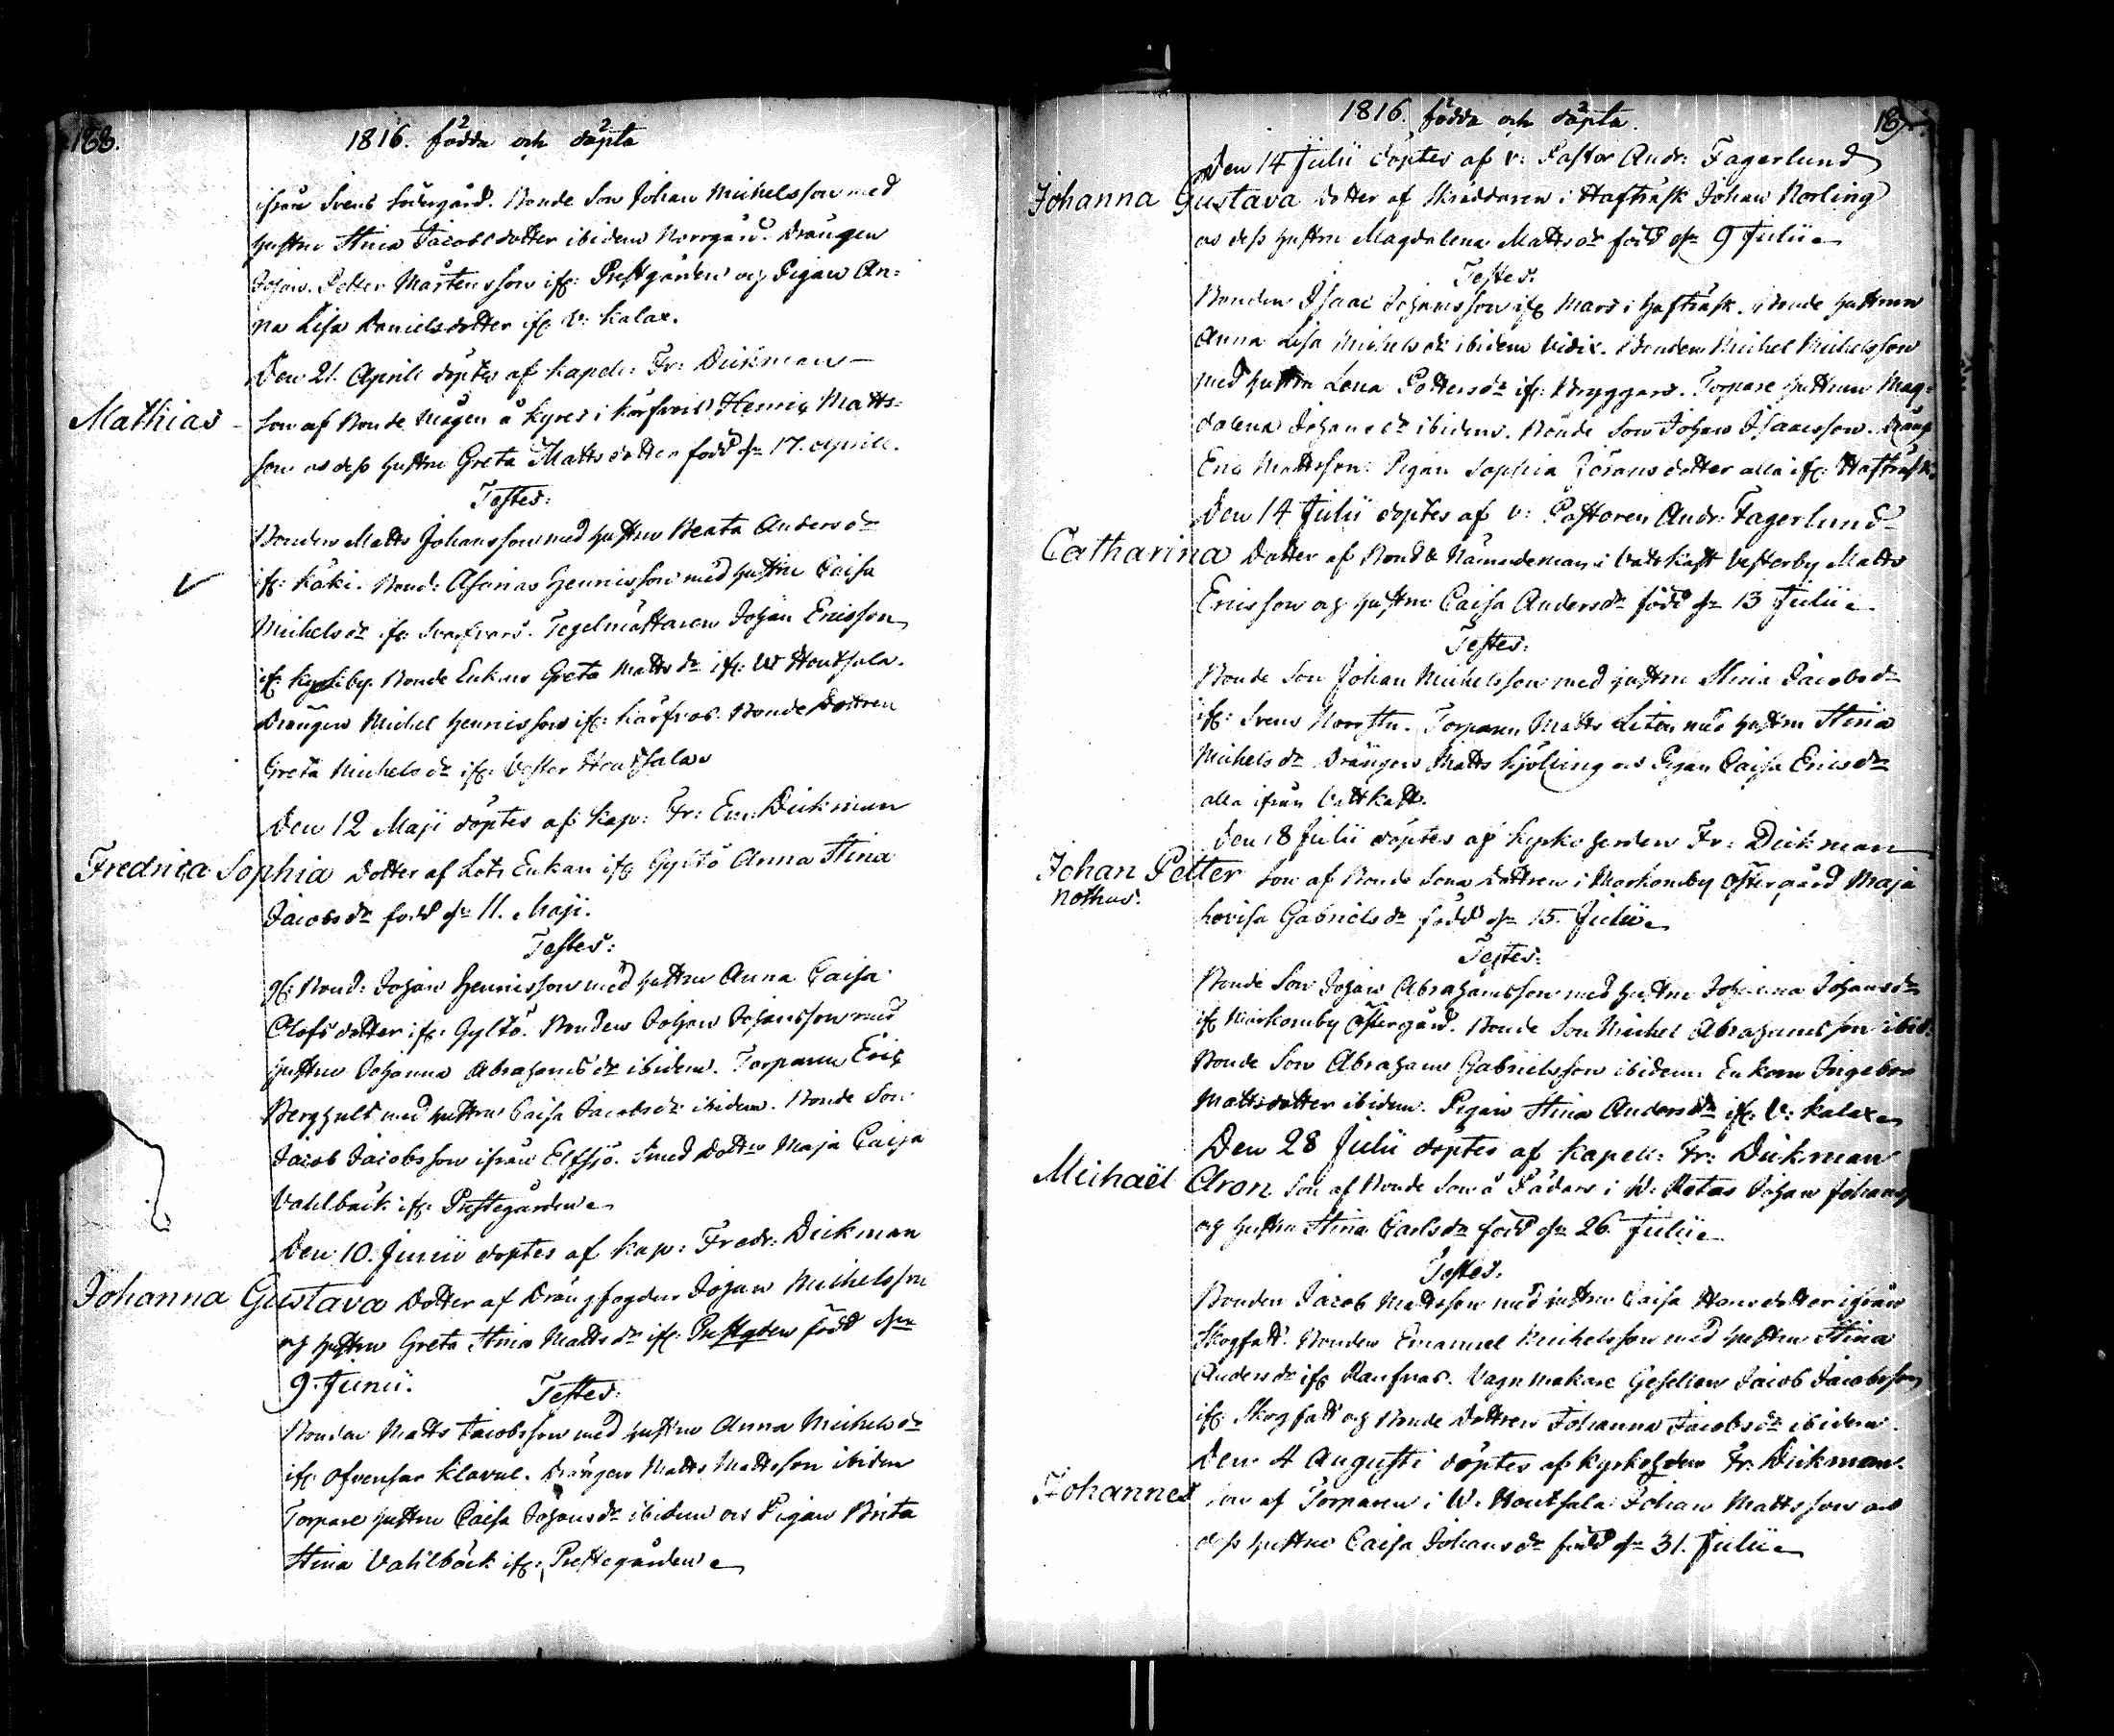 188.
1816. födda och döpta
ifrån Svens Södergård. Bonde Son Johan Michelsson med
hustru Stina Jacobsdotter ibidem Norrgård. Drängen
Johan Petter Mårtensson ifr: Prestgården och Pigan An=
na Lisa Danielsdotter ifr: V: Kalax.
Den 21. Aprill döptes af Kapell: Fr: Dickman
Mathias
Son af Bonde Mågen å Kyres i Kårfvois Henric Matts=
son as dess hustru Greta Mattsdotter född d. 17. Aprill.
Testes:
Bonden Matts Johansson med hustru Beata Andersdr
ifr: Käki. Bond: Asarias Henricsson med hustru Caisa
Michelsdr ifr: Svarfvars. Tegelmästaren Johan Ericsson
ifr: Kyrkiby. Bonde Enkan Greta Mattsdr ifr: W Houtsala.
Drängen Michel Henricsson ifr: Kårfvos. Bonde Dottren
Greta Michelsdr ifr: Vester Houtsala
Den 12 Maji döptes af Kap: Fr: Em: Dickman
Fredrica Sophia Dotter af Lots Enkan ifr Gyltö Anna Stina
Jacobsdr född d. 11. Maji.
Testes:
Bond: Johan Henricsson med hustru Anna Caisa
Olofsdotter ifr: Gyltö. Bonden Johan Johansson med
hustru Johanna Abrahamsdr ibidem. Torparen Eric
Berghult med hustru Caisa Jacobsdr ibidem. Bonde Son
Jacob Jacobsson ifrån Elfsjö. Smed Dottn Maja Caisa
Vahlbäck ifr: Prestegården
Den 10. Junii döptes af Kap: Fredr: Dickman
Johanna Gustava Dotter af Drängfogden Johan Michelsson
och hustru Greta Stina Mattsdr ifr: Prestgden född den
9. Junii. Testes:
Bonden Matts Jacobsson med hustru Anna Michelsdr
ifr: Ofvensor Klavus. Drängen Matts Mattsson ibidem
Torpare hustrun Caisa Johansdr ibidem as Pigan Brita
Stina Vahlbäck ifr: Prestegården
1816. födda och döpta.
189.
Den 14 Julii döptes af v: Pastor Andr: Fagerlund
Johanna Gustava dotter af Skräddaren i Haftrask Johan Norling
as dess hustru Magdalena Mattsdr född d. 9 Julii
Testes:
Bonden Isaac Johansson ifr Mars i Haftrask. Bonde hustrun
Anna Lisa Michelsdr ibidem Vidix. Bonden Michel Michelsson
med hustru Lena Pettersdr ifr: Bryggars. Torpare hustrun Mag=
dalena Johansdr ibidem. Bonde Son Johan Isaacsson. Dräng
Eric Mattsson. Pigan Sophia Jöransdotter alla ifr: Haftrask.
Den 14 Julii döptes af v: Pastoren Andr: Fagerlund
Catharina Dotter af Bond & Nämndeman i Vatskast Vesterby Matts
Ericsson och hustru Caisa Andersdr född d. 13 Julii
Testes:
Bonde Son Johan Michelsson med hustru Stina Jacobsdr
ifr: Svens Norrgn. Torparen Matts Liten med hustru Stina
Michelsdr Drängen Matts Kjölling as Pigan Caisa Ericsdr
alla ifrån Vattkast.
Den 18 Julii döptes af Kyrkoherden Fr: Dickman
Johan Petter Son af Bonde Sona Dottren i Markomby Östergård Maja
nothus.
Lovisa Gabrielsdr född d. 15. Julii
Testes:
Bonde Son Johan Abrahamsson med hustru Johanna Johansdr
ifr Markomby Östergård. Bonde Son Michel Abrahamsson ibid.
Bonde Son Abraham Gabrielsson ibidem. Enkan Ingebor
Mattsdotter ibidem. Pigan Stina Andersdr ifr: V: Kalax
Den 28 Julii döptes af Kapell: Fr: Dickman
Michaël Aron Son af Bonde Son å Päders i W. Retas Johan Johans
och hustru Stina Carlsdr född d. 26. Julii
Testes.
Bonden Jacob Mattsson med hustru Caisa Hansdotter ifrån
Skogfatt. Bonden Emanuel Michelsson med hustru Stina
Andersdr ifr Ranfnas. Vagnmakare Gesellen Jacob Jacobsson
ifr: Skogfatt och Bonde Dottren Johanna Jacobsdr ibidem.
Den 4 Augusti döptes af Kyrkoherden Fr: Dickman.
Johannes Son af Torparen i W. Houtsala Johan Mattsson as
dess hustru Caisa Johansdr född d. 31. Julii